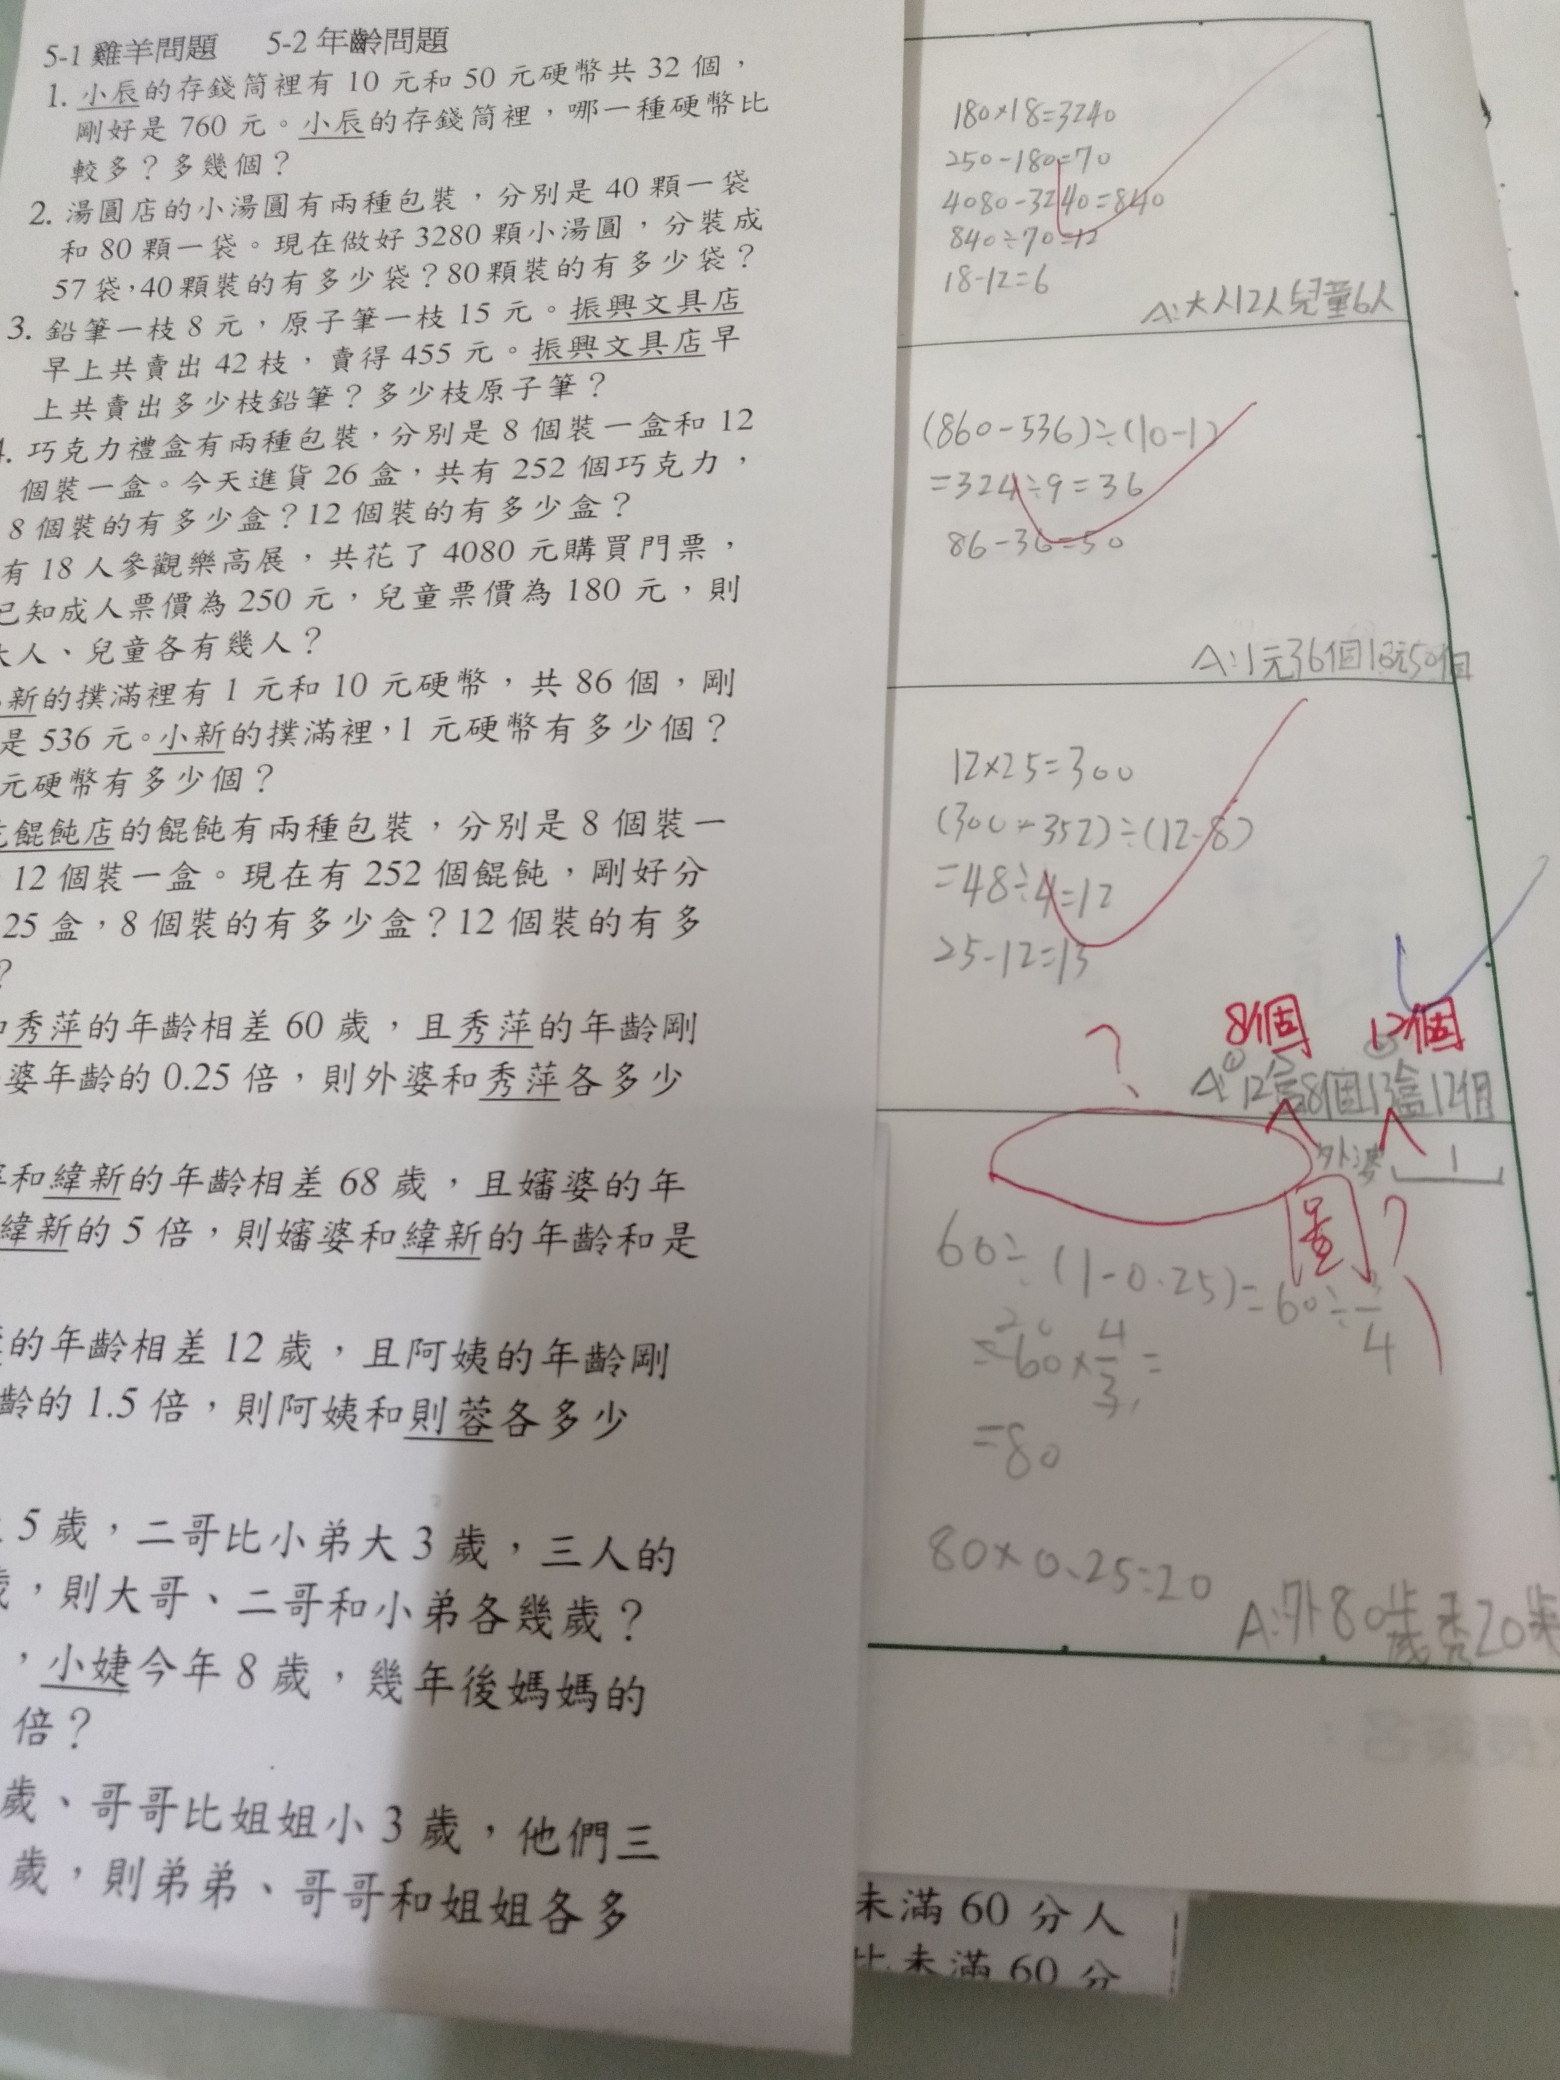 5-1 雞羊問題 5-2 年齡問題
1. 小辰的存錢筒裡有 10 元和 50 元硬幣共 32 個，
剛好是 760 元。小辰的存錢筒裡，哪一種硬幣比
較多？多幾個？
2. 湯圓店的小湯圓有兩種包裝，分別是 40 顆一袋
和 80 顆一袋。現在做好 3280 顆小湯圓，分裝成
57 袋，40 顆裝的有多少袋？80 顆裝的有多少袋？
3. 鉛筆一枝 8 元，原子筆一枝 15 元。振興文具店
早上共賣出 42 枝，賣得 455 元。振興文具店早
上共賣出多少枝鉛筆？多少枝原子筆？
4. 巧克力禮盒有兩種包裝，分別是 8 個裝一盒和 12
個裝一盒。今天進貨 26 盒，共有 252 個巧克力，
8 個裝的有多少盒？12 個裝的有多少盒？
有 18 人參觀樂高展，共花了 4080 元購買門票，
已知成人票價為 250 元，兒童票價為 180 元，則
大人、兒童各有幾人？
新的撲滿裡有 1 元和 10 元硬幣，共 86 個，剛
是 536 元。小新的撲滿裡，1 元硬幣有多少個？
元硬幣有多少個？
餛飩店的餛飩有兩種包裝，分別是 8 個裝一
12 個裝一盒。現在有 252 個餛飩，剛好分
25 盒，8 個裝的有多少盒？12 個裝的有多
？
和秀萍的年齡相差 60 歲，且秀萍的年齡剛
婆年齡的 0.25 倍，則外婆和秀萍各多少
和緯新的年齡相差 68 歲，且嬸婆的年
緯新的 5 倍，則嬸婆和緯新的年齡和是
的年齡相差 12 歲，且阿姨的年齡剛
齡的 1.5 倍，則阿姨和則蓉各多少
5 歲，二哥比小弟大 3 歲，三人的
歲，則大哥、二哥和小弟各幾歲？
，小婕今年 8 歲，幾年後媽媽的
倍？
歲、哥哥比姐姐小 3 歲，他們三
歲，則弟弟、哥哥和姐姐各多
180×18=3240
250-180=70
4080-3240=840
840÷70=12
18-12=6
A:大人12人兒童6人
(860-536)÷(10-1)
=324÷9=36
86-36=50
A:1元36個10元50個
12×25=300
(300-352)÷(12-8)
=48÷4=12
25-12=13
？ 8個 12個
A:12盒8個13盒12個
外婆 1
圖？
60÷(1-0.25)=60÷3/4
=60×4/3=
=80
80×0.25=20
A:外80歲秀20歲
未滿 60 分人
比未滿 60 分